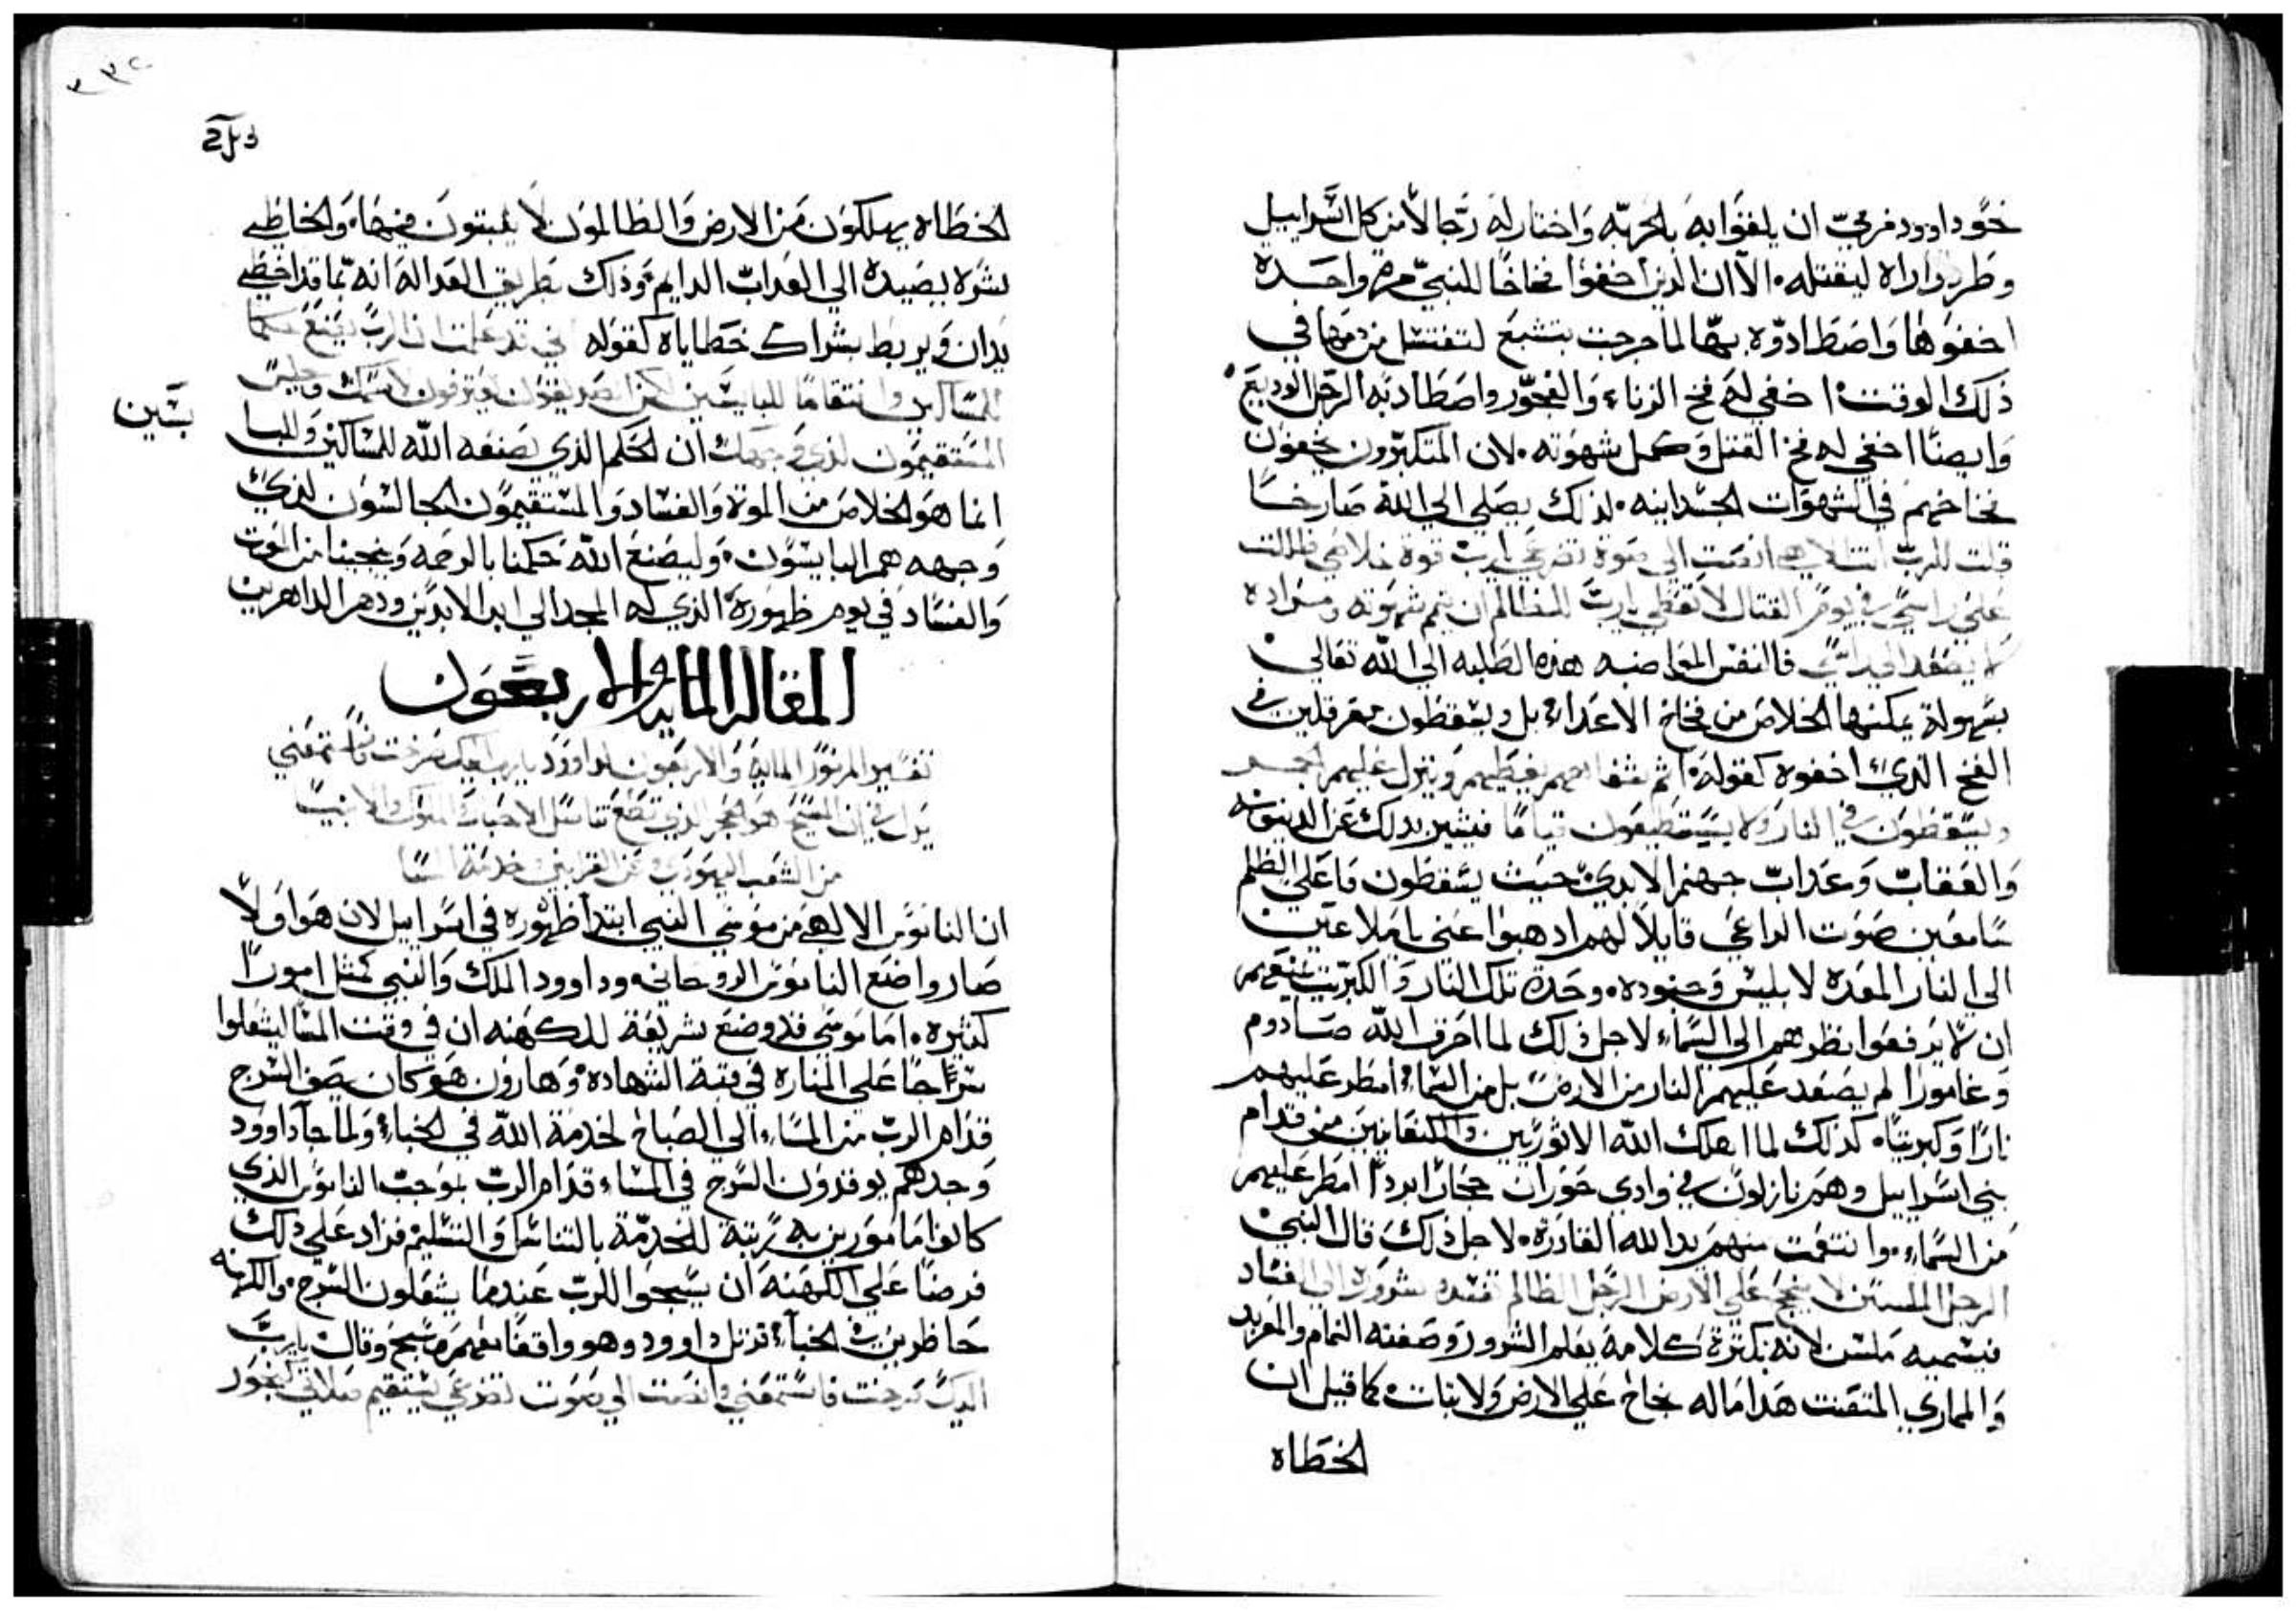 خو داوود فرعي ان يلقوا به بالحربه واختار له رجالا من كل اسراييل
وطردوا وراه ليقتله. الا ان الذين اخفوا فخاخا للنبي مره واحده
اخفوها واصطادوه بها لما خرجت بتشبع لتغتسل من دمها في
ذلك الوقت اخفي له فخ الزناء والفجور واصطاد به الرجل الوديع.
وايضا اخفي له فخ القتل وكمل شهوته. لان المتكبرون يخفون
فخاخهم في الشهوات الجسدانيه. لذلك يصلي الي الله صارخا
قلت للرب انت الاهي انصت الي صوت تضرعي يارب قوة خلاصي ظللت
علي راسي في يوم القتال لا تعطي يارب للظالم ان يتم شهوته ومراده
فالنفس هذه الطلبه الي الله تعالي
بسهولة يمكنها الخلاص من فخاخ الاعداء بل ويسقطون معرقلين في
الفخ الذي اخفوه كقوله اثم شفاههم يغطيهم وينزل عليهم الجمر
ويسقطون في النار ولا يستطيعون قياما فيشير بذلك عن الدينونه
والعقاب وعذاب جهنم الابدي حيث يسقطون فاعلي الظلم
سامعين صوت الداعي قايلا لهم اذهبوا عني ياملاعين
الي النار المعده لابليس وجنوده. وحدة تلك النار والكبريت تمنعهم
ان لا يرفعوا نظرهم الي السماء لاجل ذلك لما احرق الله صادوم
وغامورا لم يصعد عليهم النار من الارض بل من السماء امطر عليهم
نارا وكبريتا. كذلك لما اهلك الله الاثوريين والكنعانيين من قدام
بني اسراييل وهم نازلون في وادي حوران حجار ابردا امطر عليهم
من السماء. وانتقمت منهم يد الله القادره. لاجل ذلك قال النبي
الرجل الملسن لا ينجح علي الارض الرجل الظالم تصيده شروره الي الفساد
فيسميه ملسن لانه بكترة كلامه يعلم الشرور وصفته النمام والمعربد
والمماري المتعنت هذا ماله نجاح علي الارض ولا ثبات كما قيل ان
الخطاه
الخطاه يهلكون من الارض والظالمون لا يثبتون فيها. والخاطي
شره يصيده الي العذاب الدايم وذلك بطريق العداله انه بما قد اخطي
يدان ويربط بشراك خطاياه كقوله اني قد علمت ان الرب يصنع حكما
للمساكين وانتقاما للبايسين لكن الصديقون يعترفون لاسمك وجليس
المستقيمون لدي وجهك ان الحكم الذي يصنعه الله للمساكين وللبا
بسين
انما هو الخلاص من الموت والفساد والمستقيمون الجالسون لدي
وجهه هم البايسون. وليصنع الله حكمنا بالرحمه وينجينا من الموت
والفساد في يوم ظهوره الذي له المجد الي ابد الابدين ودهر الداهرين
المقاله المايه والاربعون
تفسير المزمور المايه والاربعون لداوود يارب اليك صرخت فاستمعني
يدل في ان المسيح هو الحجر الذي قطع تناسل الاحبار والملوك والانبيا
من الشعب اليهودي وعن القرابين وخدمة المسا
ان الناموس الالهي من موسي النبي ابتدا ظهوره في اسراييل لان هو اولا
صار واضع الناموس الروحانيه وداوود الملك والنبي كمثل امورا
كثيره. اما موسي فقد وضع شريعة للكهنه ان في وقت المسا ليشعلوا
سراجا علي المناره في قبة الشهاده وهارون هو كان يصف السرج
قدام الرب من المساء الي الصباح لخدمة الله في الخباء ولما جا داوود
وجدهم يوقدون السرج في المساء قدام الرب بموجب الناموس الذي
كانوا مامورين به برتبة للخدمة بالتناسل والتسليم فزاد علي ذلك
فرضا علي الكهنه ان يسبحوا للرب عندما يشعلون السرج. والكهنه
حاظرين في الخباء ترتل داوود وهو واقفا يعهم مسبح وقال يارب
اليك صرخت فاستمعني وانصت الي صوت تضرعي لتستقيم صلاتي كبخور